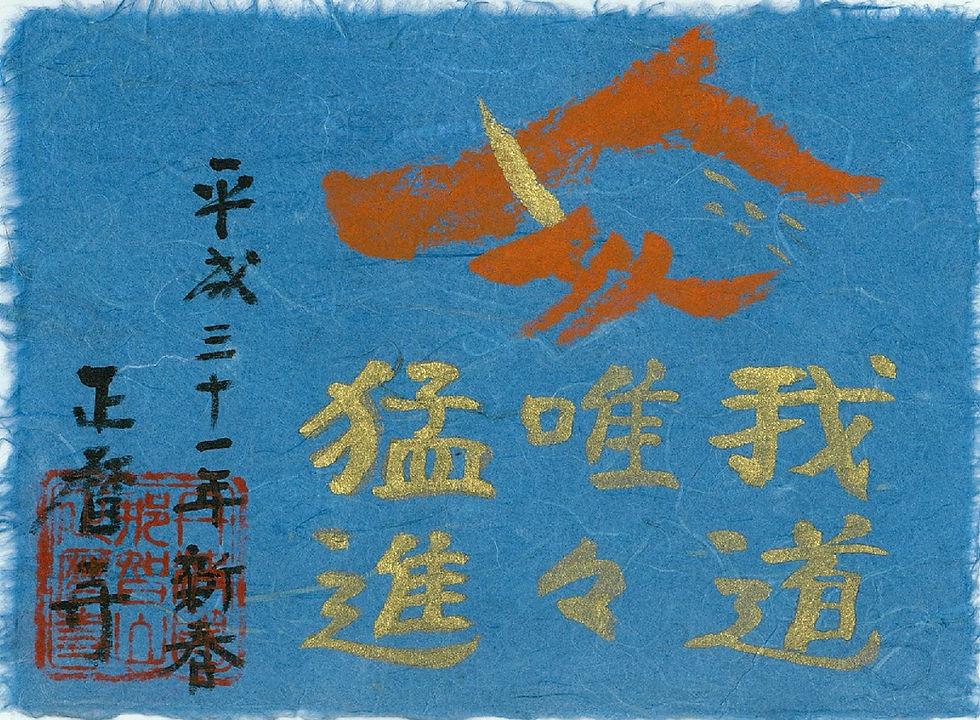 我道
唯々
猛進
平成三十一年新春
正暦寺